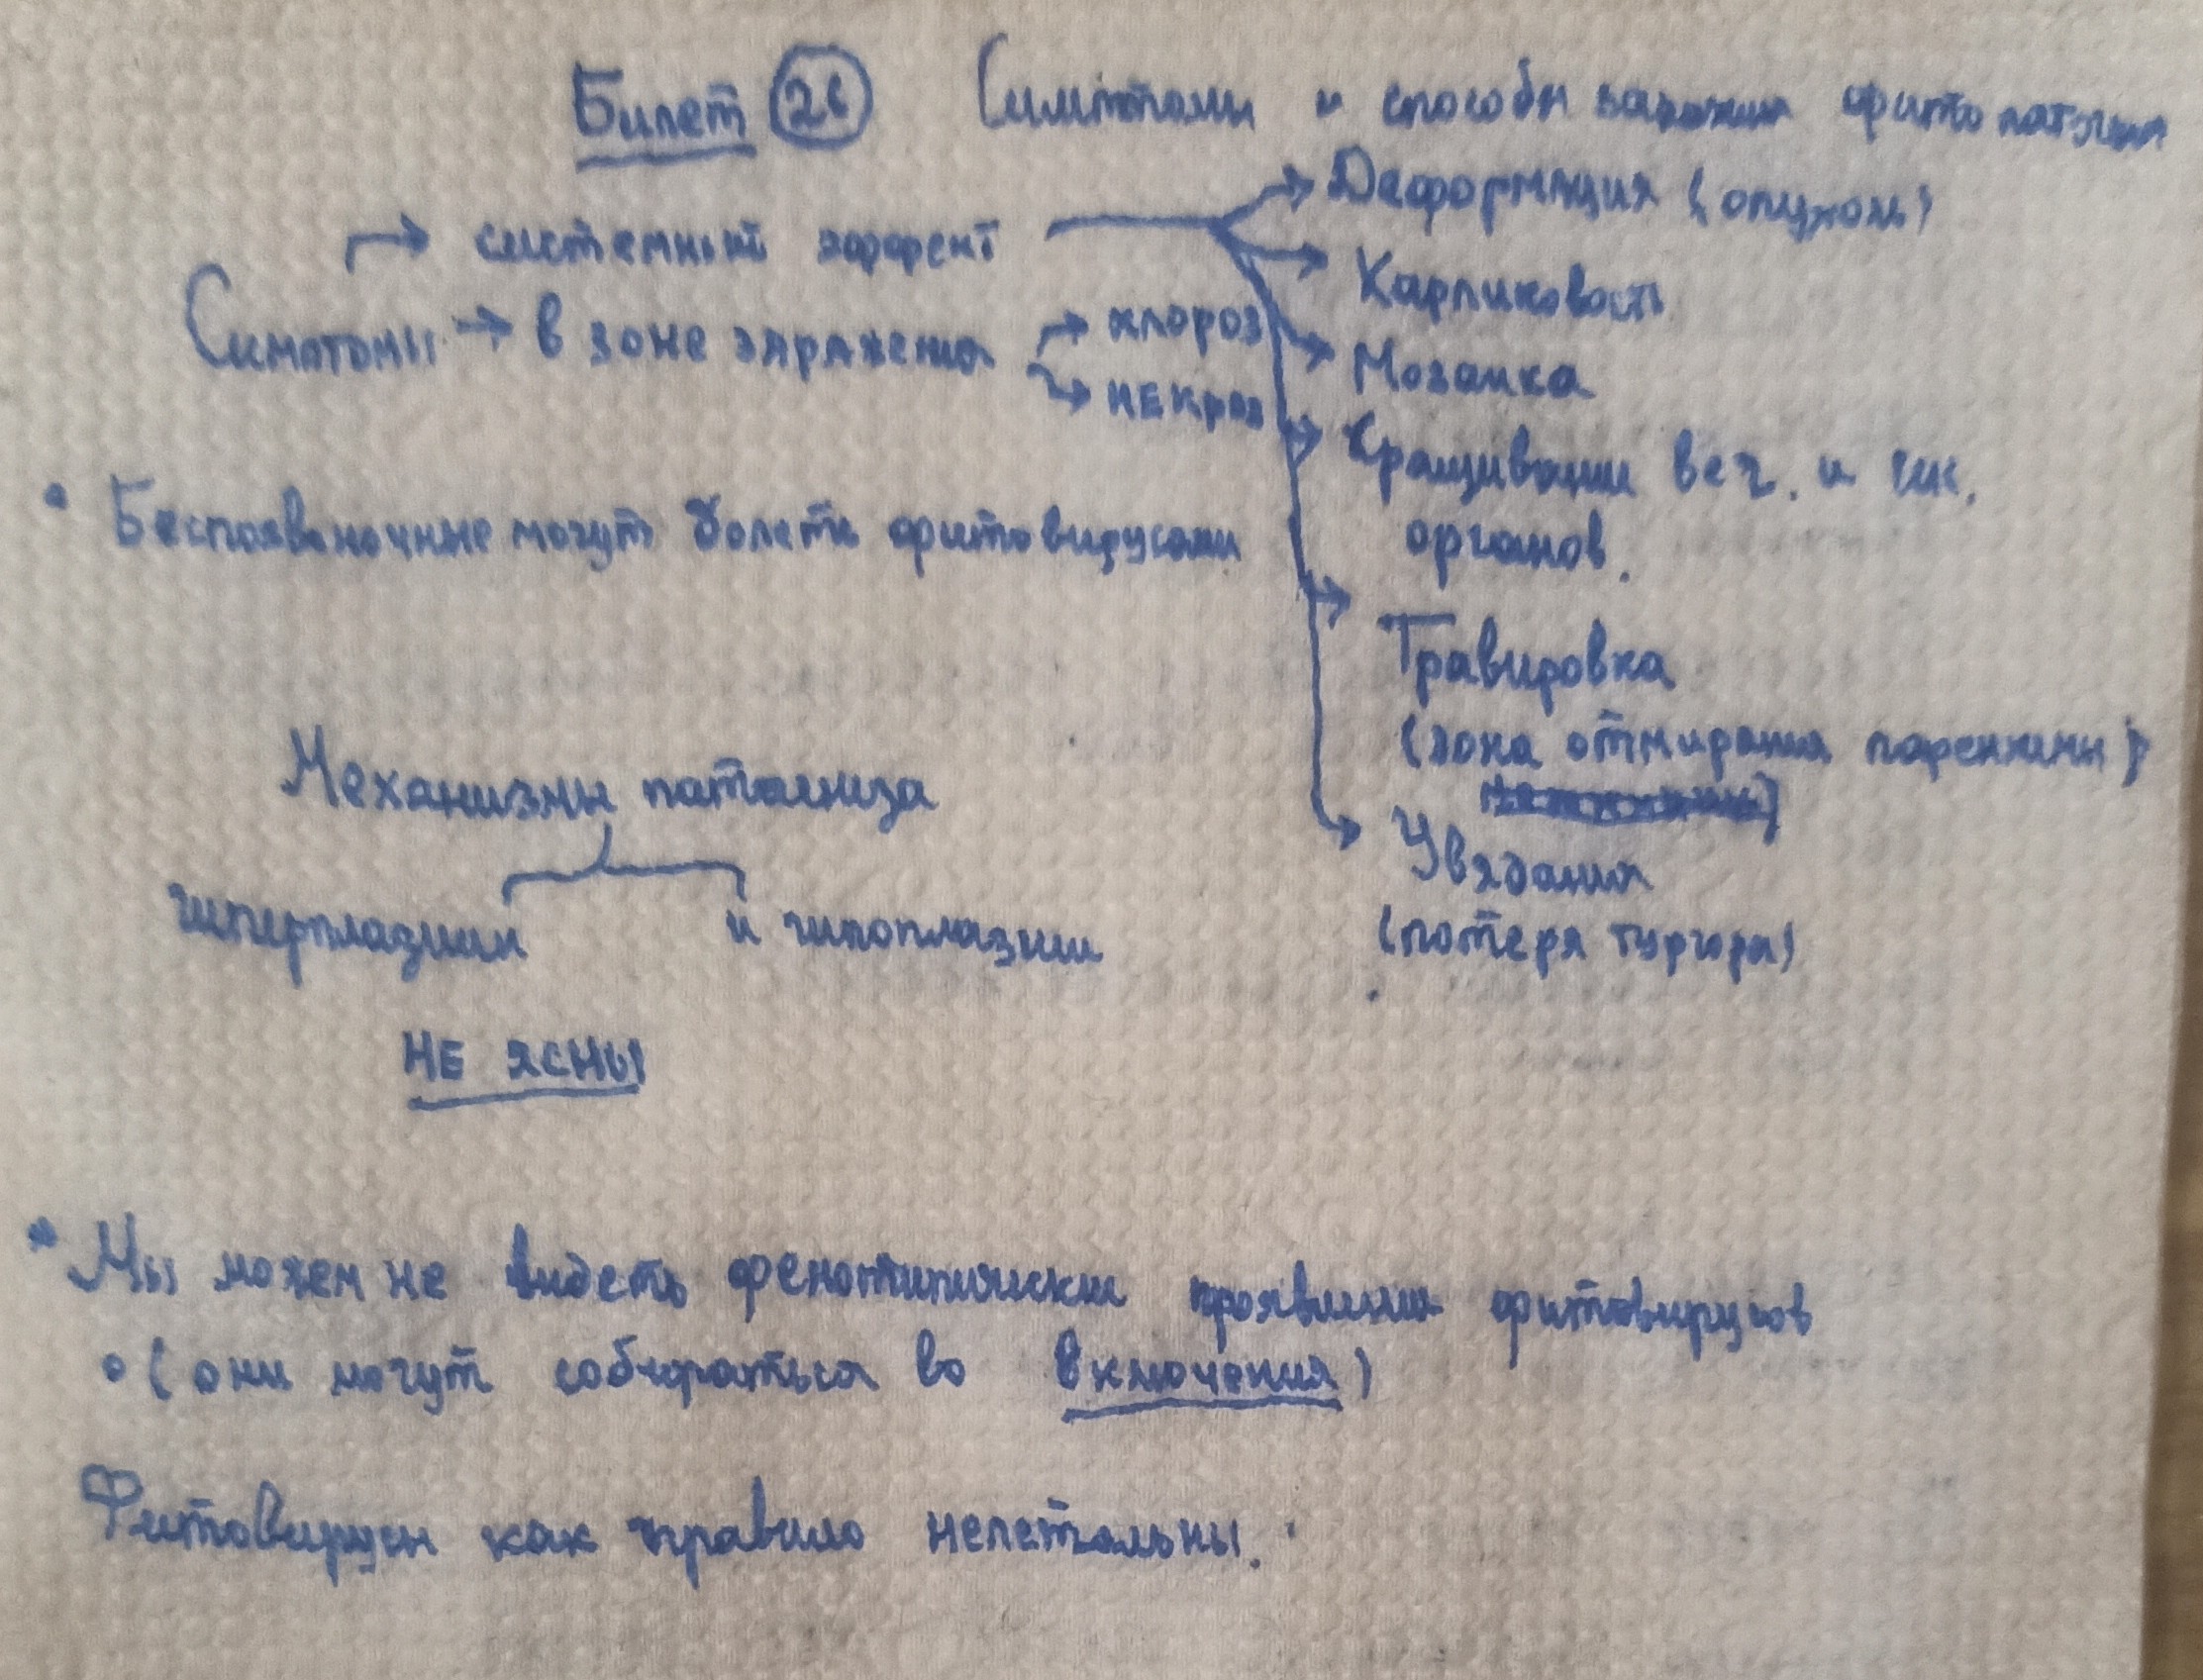 Билет 26 Симптомы и способы заражения фитопатогена
→ системный эффект
Симптомы → в зоне заражения
→ хлороз
→ некроз
→ Деформация (опухоль)
→ Карликовость
→ Мозаика
→ Сращивание вег. и ген.
органов.
→ Гравировка
(зона отмирания паренхимы)
→ Увядания
(потеря тургора)
• Беспозвоночные могут болеть фитовирусами
Механизмы патогенеза
гиперплазии и гипоплазии
НЕ ЯСНЫ
* Мы можем не видеть фенотипически проявлении фитовирусов
• (они могут собираться во включения)
Фитовирусы как правило нелетальны.